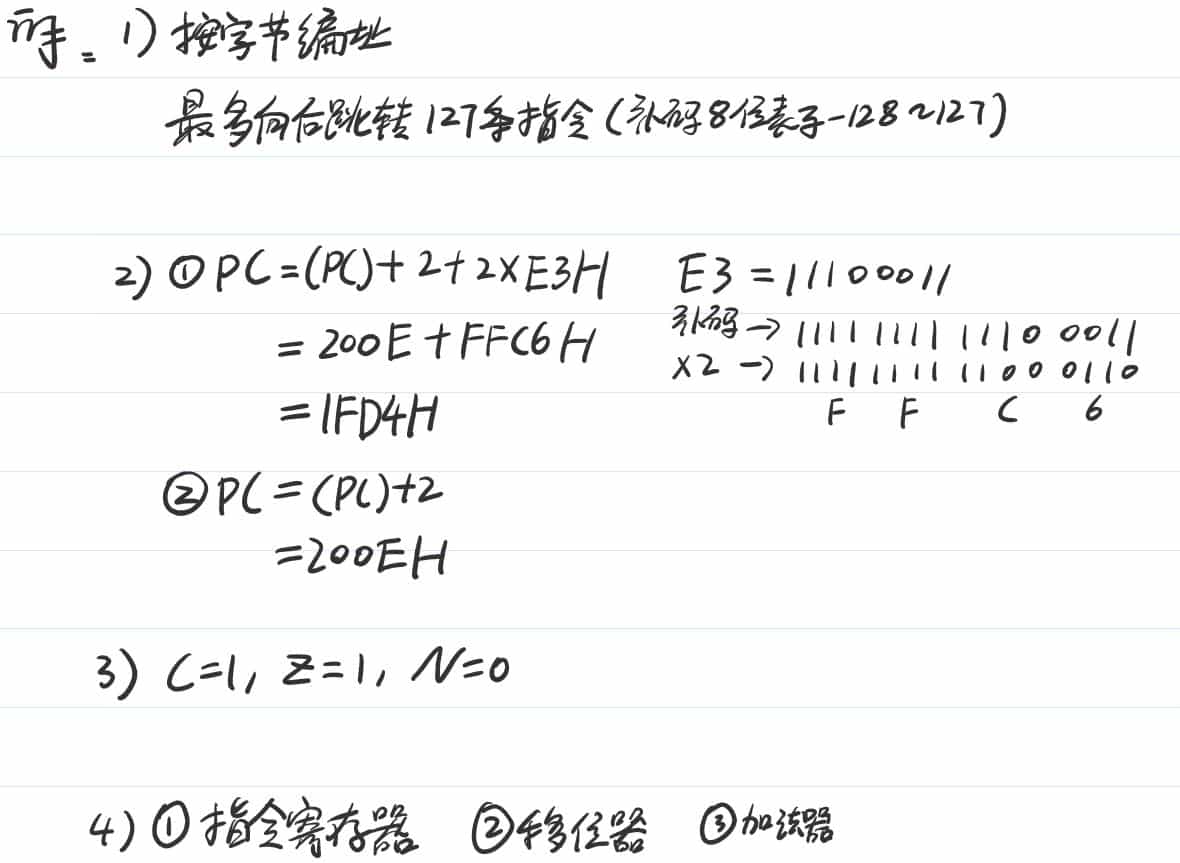 解: 1) 按字节编址
最多向后跳转127条指令(补码8位表示-128~127)
2) ① PC=(PC)+2+2×E3H E3=11100011
=200E+FFC6H 补码→ 1111 1111 1110 0011
×2 → 1111 1111 1100 0110
=1FD4H F F C 6
② PC=(PC)+2
=200EH
3) C=1, Z=1, N=0
4) ①指令寄存器 ②移位器 ③加法器